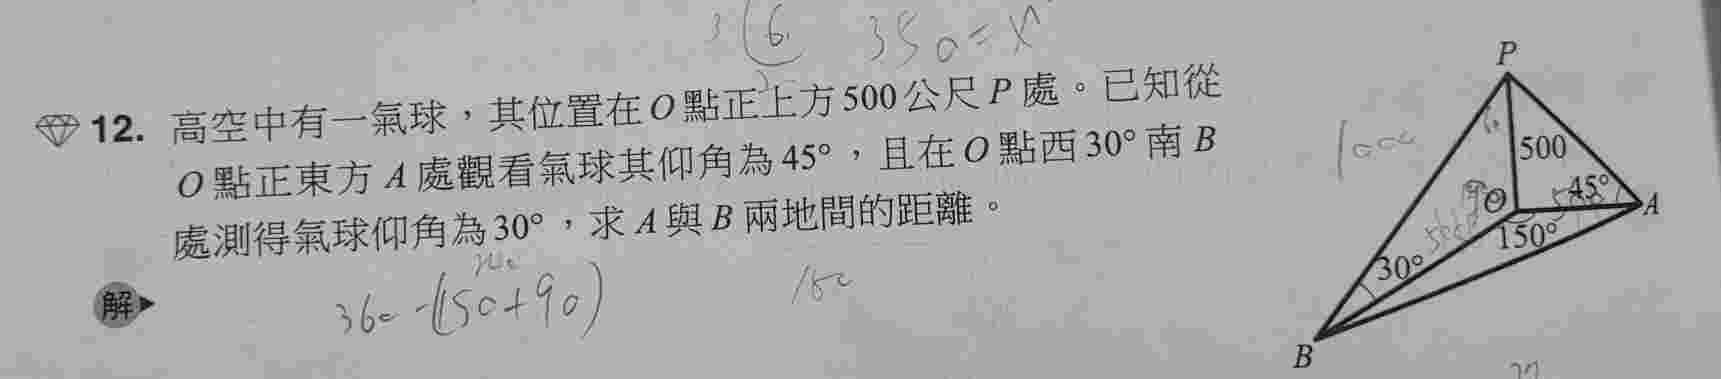 36 350=x
12. 高空中有一氣球,其位置在O點正上方500公尺P處。已知從
O點正東方A處觀看氣球其仰角為45°,且在O點西30°南B
處測得氣球仰角為30°,求A與B兩地間的距離。
解
360-(150+90)
150
1000
P
500
45°
O
A
150°
30°
B